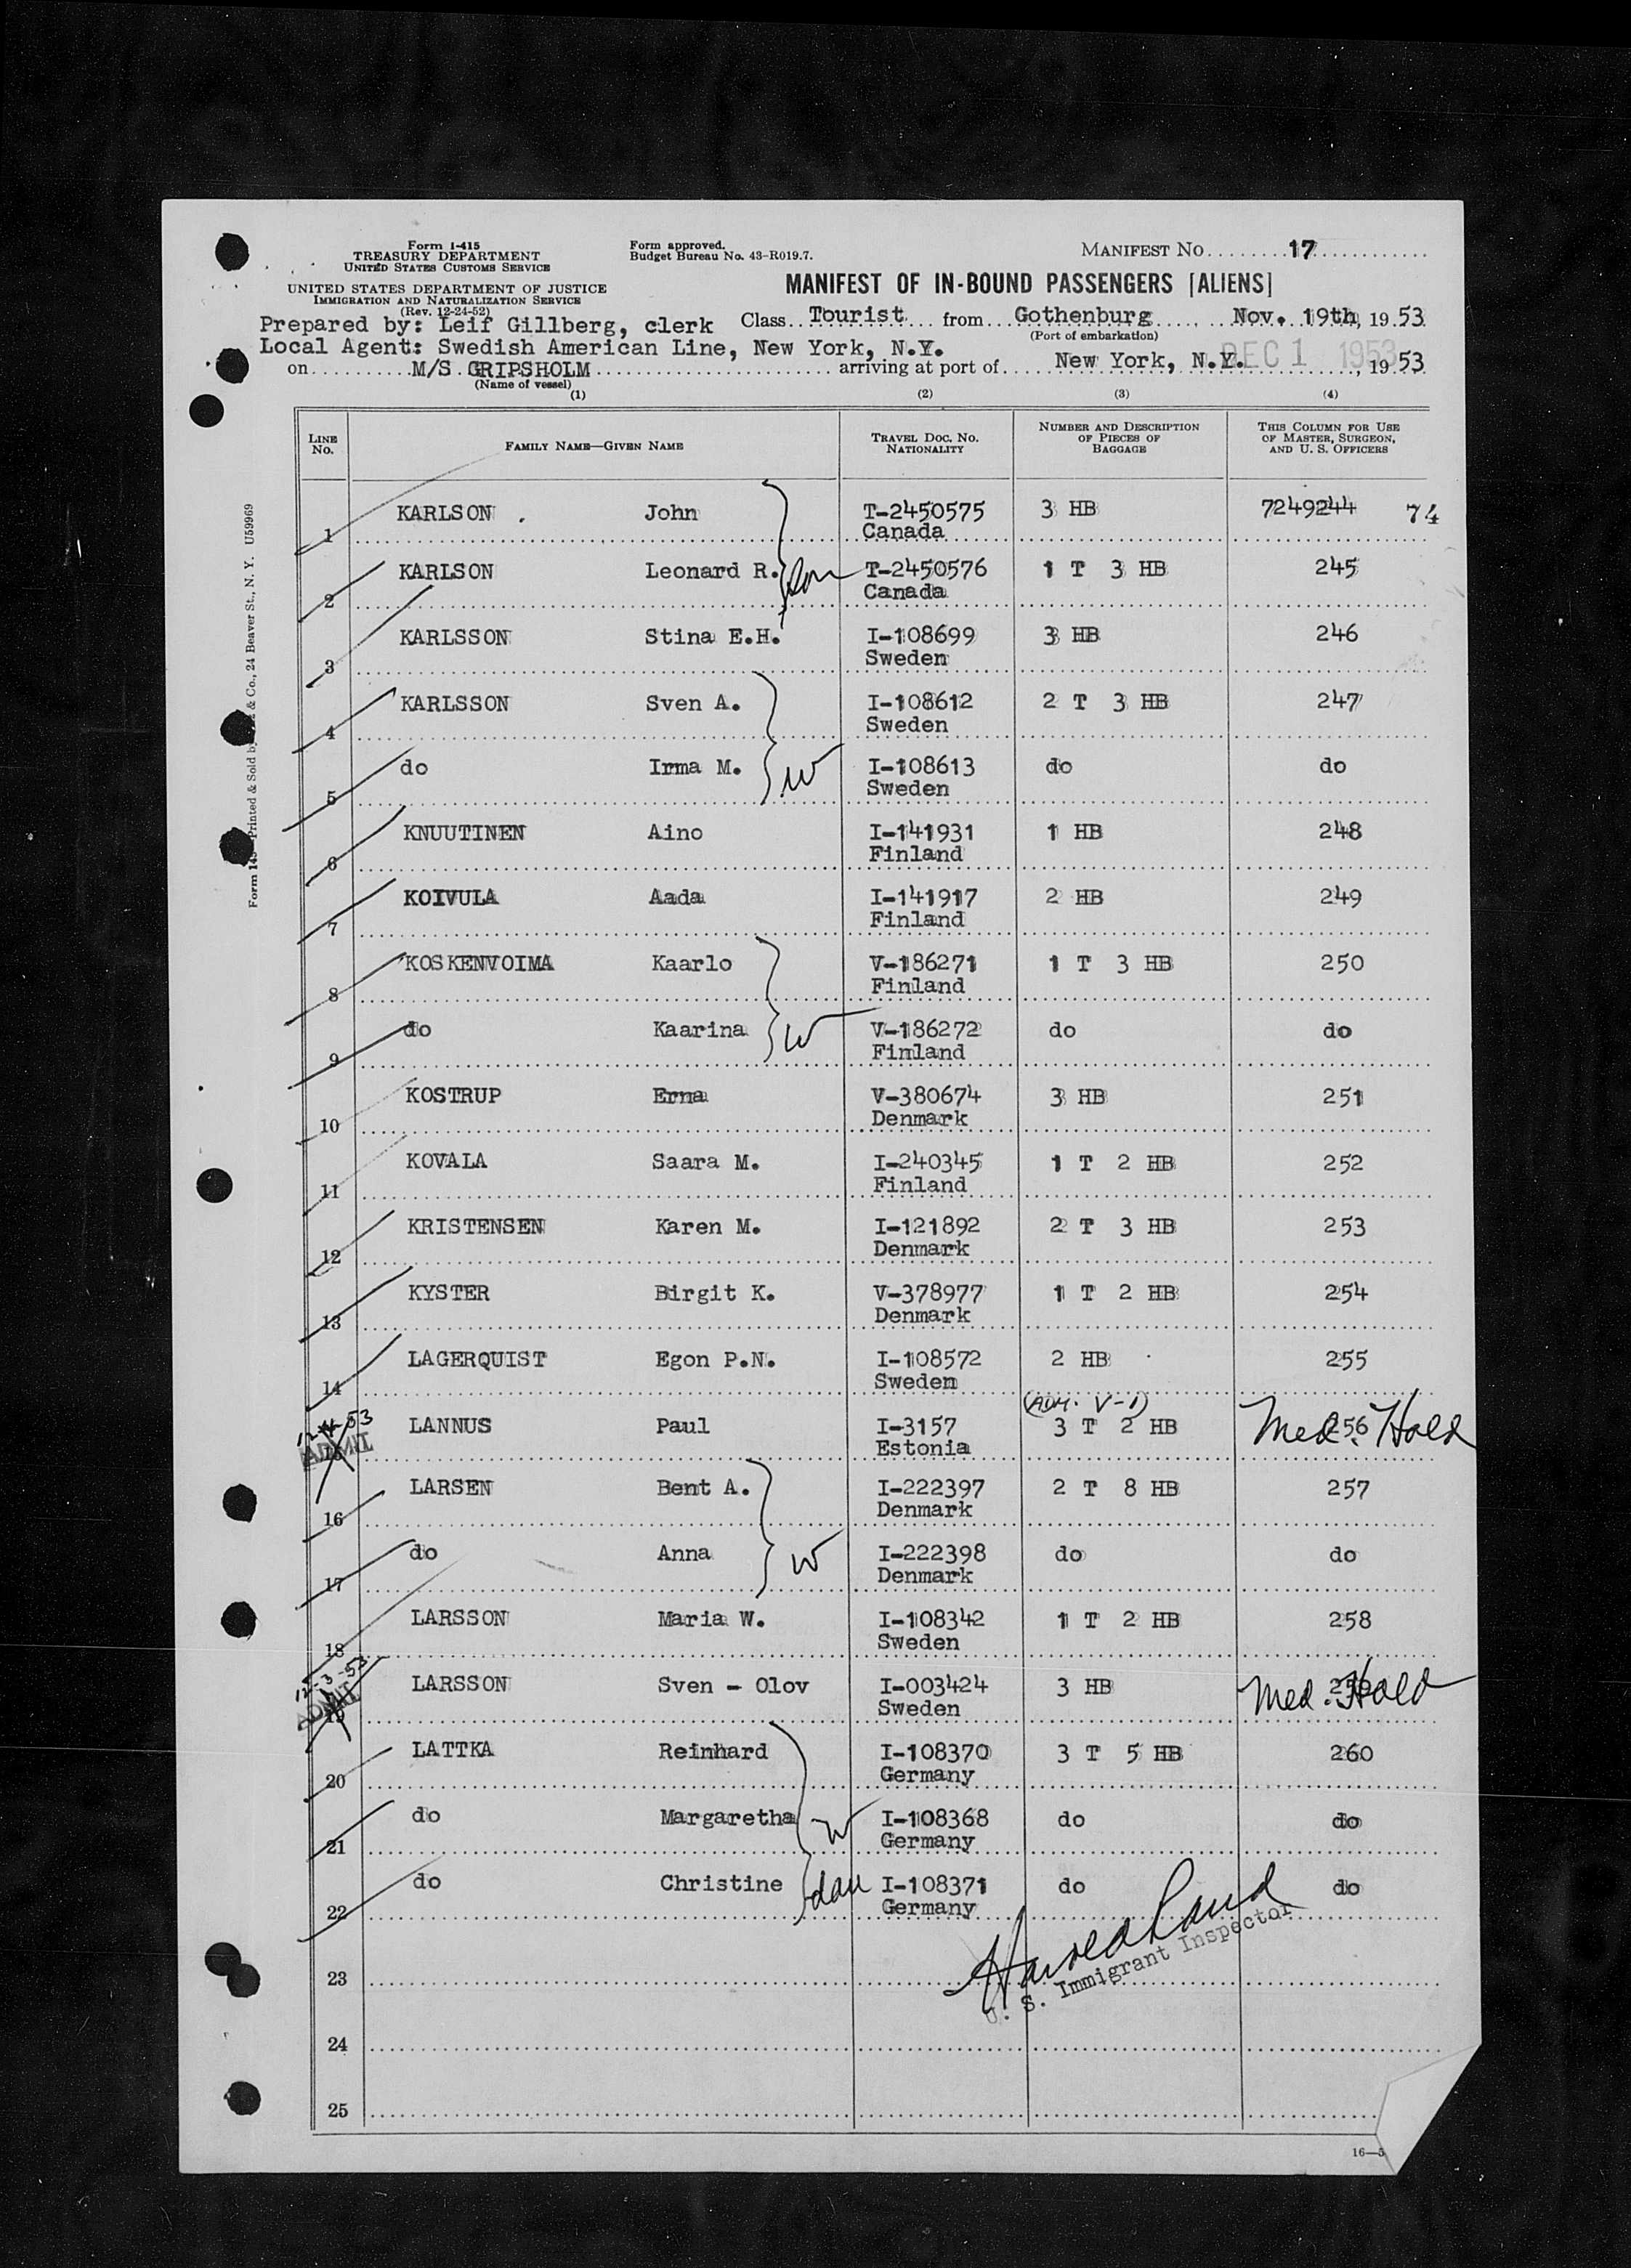 Form I-415
TREASURY DEPARTMENT
UNITED STATES CUSTOMS SERVICE
UNITED STATES DEPARTMENT OF JUSTICE
IMMIGRATION AND NATURALIZATION SERVICE
(Rev. 12-24-52)
Form approved.
Budget Bureau No. 43-R019.7.
MANIFEST NO. 17
MANIFEST OF IN-BOUND PASSENGERS [ALIENS]
Prepared by: Leif Gillberg, clerk Class Tourist from Gothenburg Nov. 19th, 19 53
(Port of embarkation)
Local Agent: Swedish American Line, New York, N.Y.
on M/S GRIPSHOLM arriving at port of New York, N.Y. DEC 1 1953, 19 53
(Name of vessel)
(1) (2) (3) (4)
LINE NO. FAMILY NAME—GIVEN NAME TRAVEL DOC. NO. NATIONALITY NUMBER AND DESCRIPTION OF PIECES OF BAGGAGE THIS COLUMN FOR USE OF MASTER, SURGEON, AND U. S. OFFICERS
1 KARLSON John T-2450575 3 HB 7249244 74
Canada
2 KARLSON Leonard R. son T-2450576 1 T 3 HB 245
Canada
3 KARLSSON Stina E.H. I-108699 3 HB 246
Sweden
4 KARLSSON Sven A. I-108612 2 T 3 HB 247
Sweden
5 do Irma M. W I-108613 do do
Sweden
6 KNUUTINEN Aino I-141931 1 HB 248
Finland
7 KOIVULA Aada I-141917 2 HB 249
Finland
8 KOSKENVOIMA Kaarlo V-186271 1 T 3 HB 250
Finland
9 do Kaarina W V-186272 do do
Finland
10 KOSTRUP Erna V-380674 3 HB 251
Denmark
11 KOVALA Saara M. I-240345 1 T 2 HB 252
Finland
12 KRISTENSEN Karen M. I-121892 2 T 3 HB 253
Denmark
13 KYSTER Birgit K. V-378977 1 T 2 HB 254
Denmark
14 LAGERQUIST Egon P.N. I-108572 2 HB 255
Sweden
(ADM. V-1)
12-4-53 ADMIT 15 LANNUS Paul I-3157 3 T 2 HB 256 Med. Hold
Estonia
16 LARSEN Bent A. I-222397 2 T 8 HB 257
Denmark
17 do Anna W I-222398 do do
Denmark
18 LARSSON Maria W. I-108342 1 T 2 HB 258
Sweden
12-3-53 ADMIT 19 LARSSON Sven - Olov I-003424 3 HB Med. Hold
Sweden
20 LATTKA Reinhard I-108370 3 T 5 HB 260
Germany
21 do Margaretha W I-108368 do do
Germany
22 do Christine dau I-108371 do do
Germany
23
U. S. Immigrant Inspector
24
25
16—5
& Co., 24 Beaver St., N. Y. U59969
Printed & Sold by